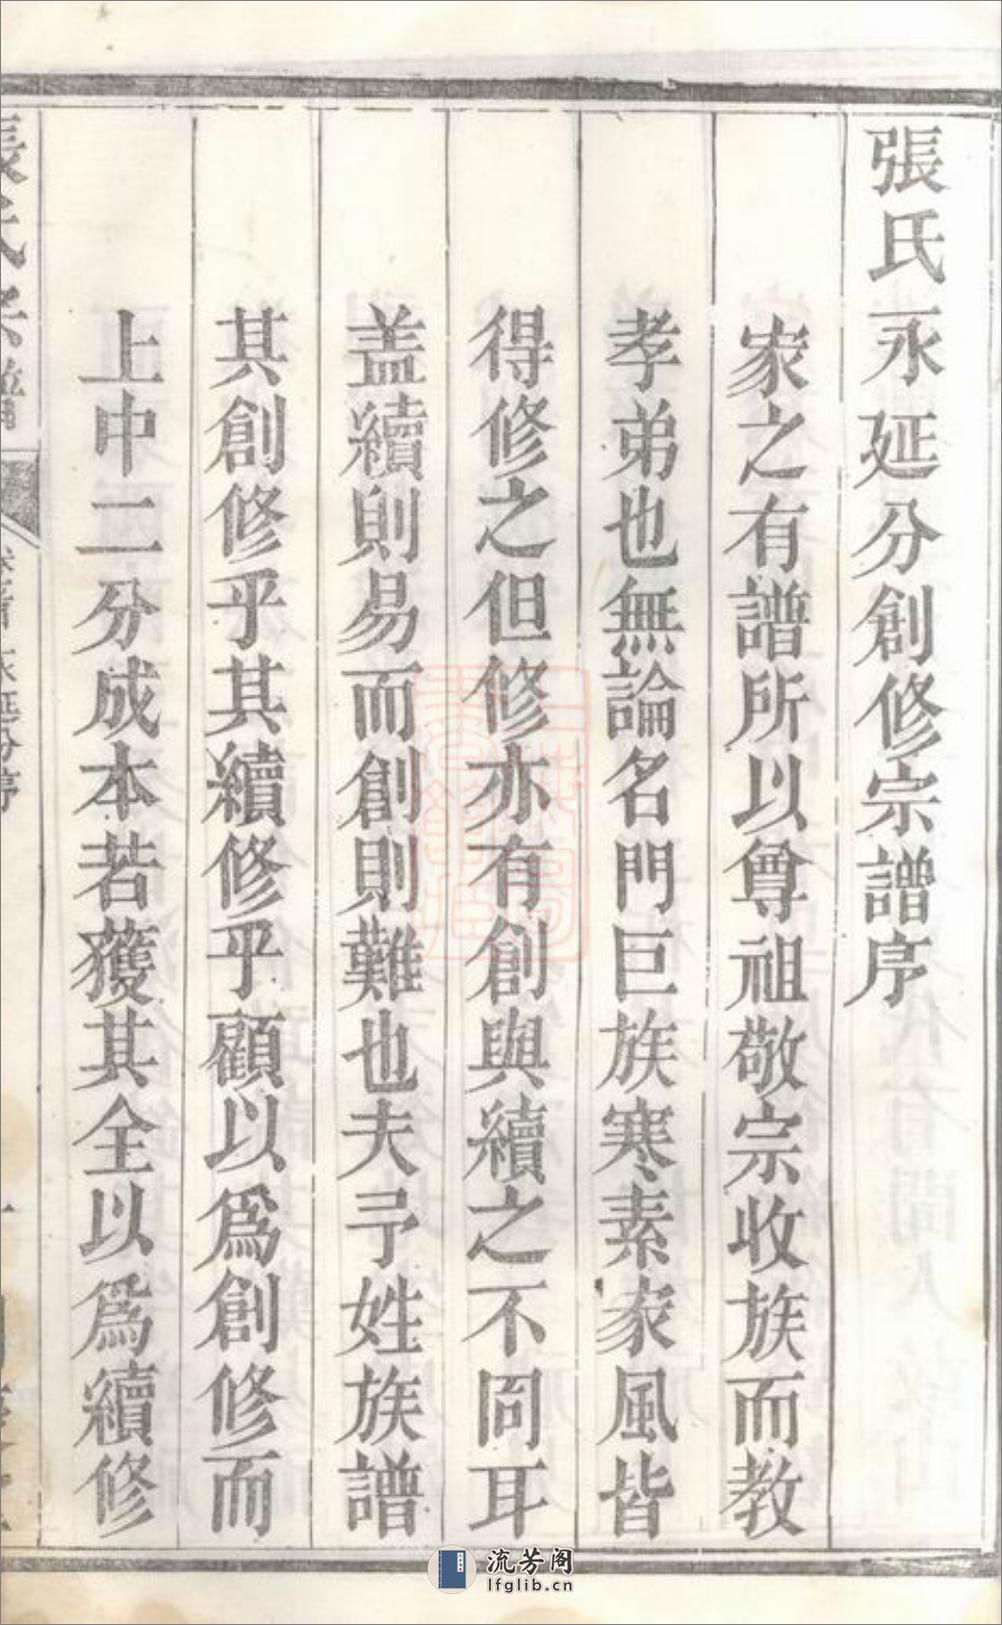 張氏永延分創修宗譜序
家之有譜所以尊祖敬宗收族而教
孝弟也無論名門巨族寒素家風皆
得修之但修亦有創與續之不同耳
盖續則易而創則難也夫予姓族譜
其創修乎其續修乎顧以爲創修而
上中二分成本若獲其全以爲續修
流芳阁
lfglib.cn